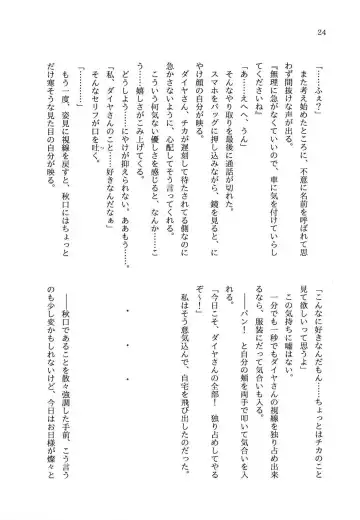 24
「……ふぇ？」
また考え始めたところに、不意に名前を呼ばれて思
わず間抜けな声が出る。
『無理に急がなくていいので、車に気を付けていらし
てくださいね』
「あ……えへへ、うん」
そんなやり取りを最後に通話が切れた。
スマホをバッグに押し込みながら、鏡を見ると、に
やけ顔の自分が映る。
ダイヤさん、チカが遅刻して待たされてる側なのに
急かさないように、心配してそう言ってくれる。
こういう何気ない優しさを感じると、なんか……こ
う……嬉しさがこみ上げてくる。
どうしよう……にやけが抑えられない、ああもう……。
「私、ダイヤさんのこと……好きなんだなぁ」
そんなセリフが口を吐く。
もう一度、姿見に視線を戻すと、秋口にはちょっと
だけ寒そうな見た目の自分が映る。
「こんなに好きなんだもん……ちょっとはチカのこと
見て欲しいって思うよ」
この気持ちに嘘はない。
一分でも一秒でもダイヤさんの視線を独り占め出来
るなら、服装にだって気合いも入る。
──パン！ と自分の頬を両手で叩いて気合いを入
れる。
「今日こそ、ダイヤさんの全部！ 独り占めしてやる
ぞ～！」
私はそう意気込んで、自宅を飛び出したのだった。
＊ ＊ ＊
──秋口であることを散々強調した手前、こう言う
のも少し変かもしれないけど、今日はお日様が燦々と